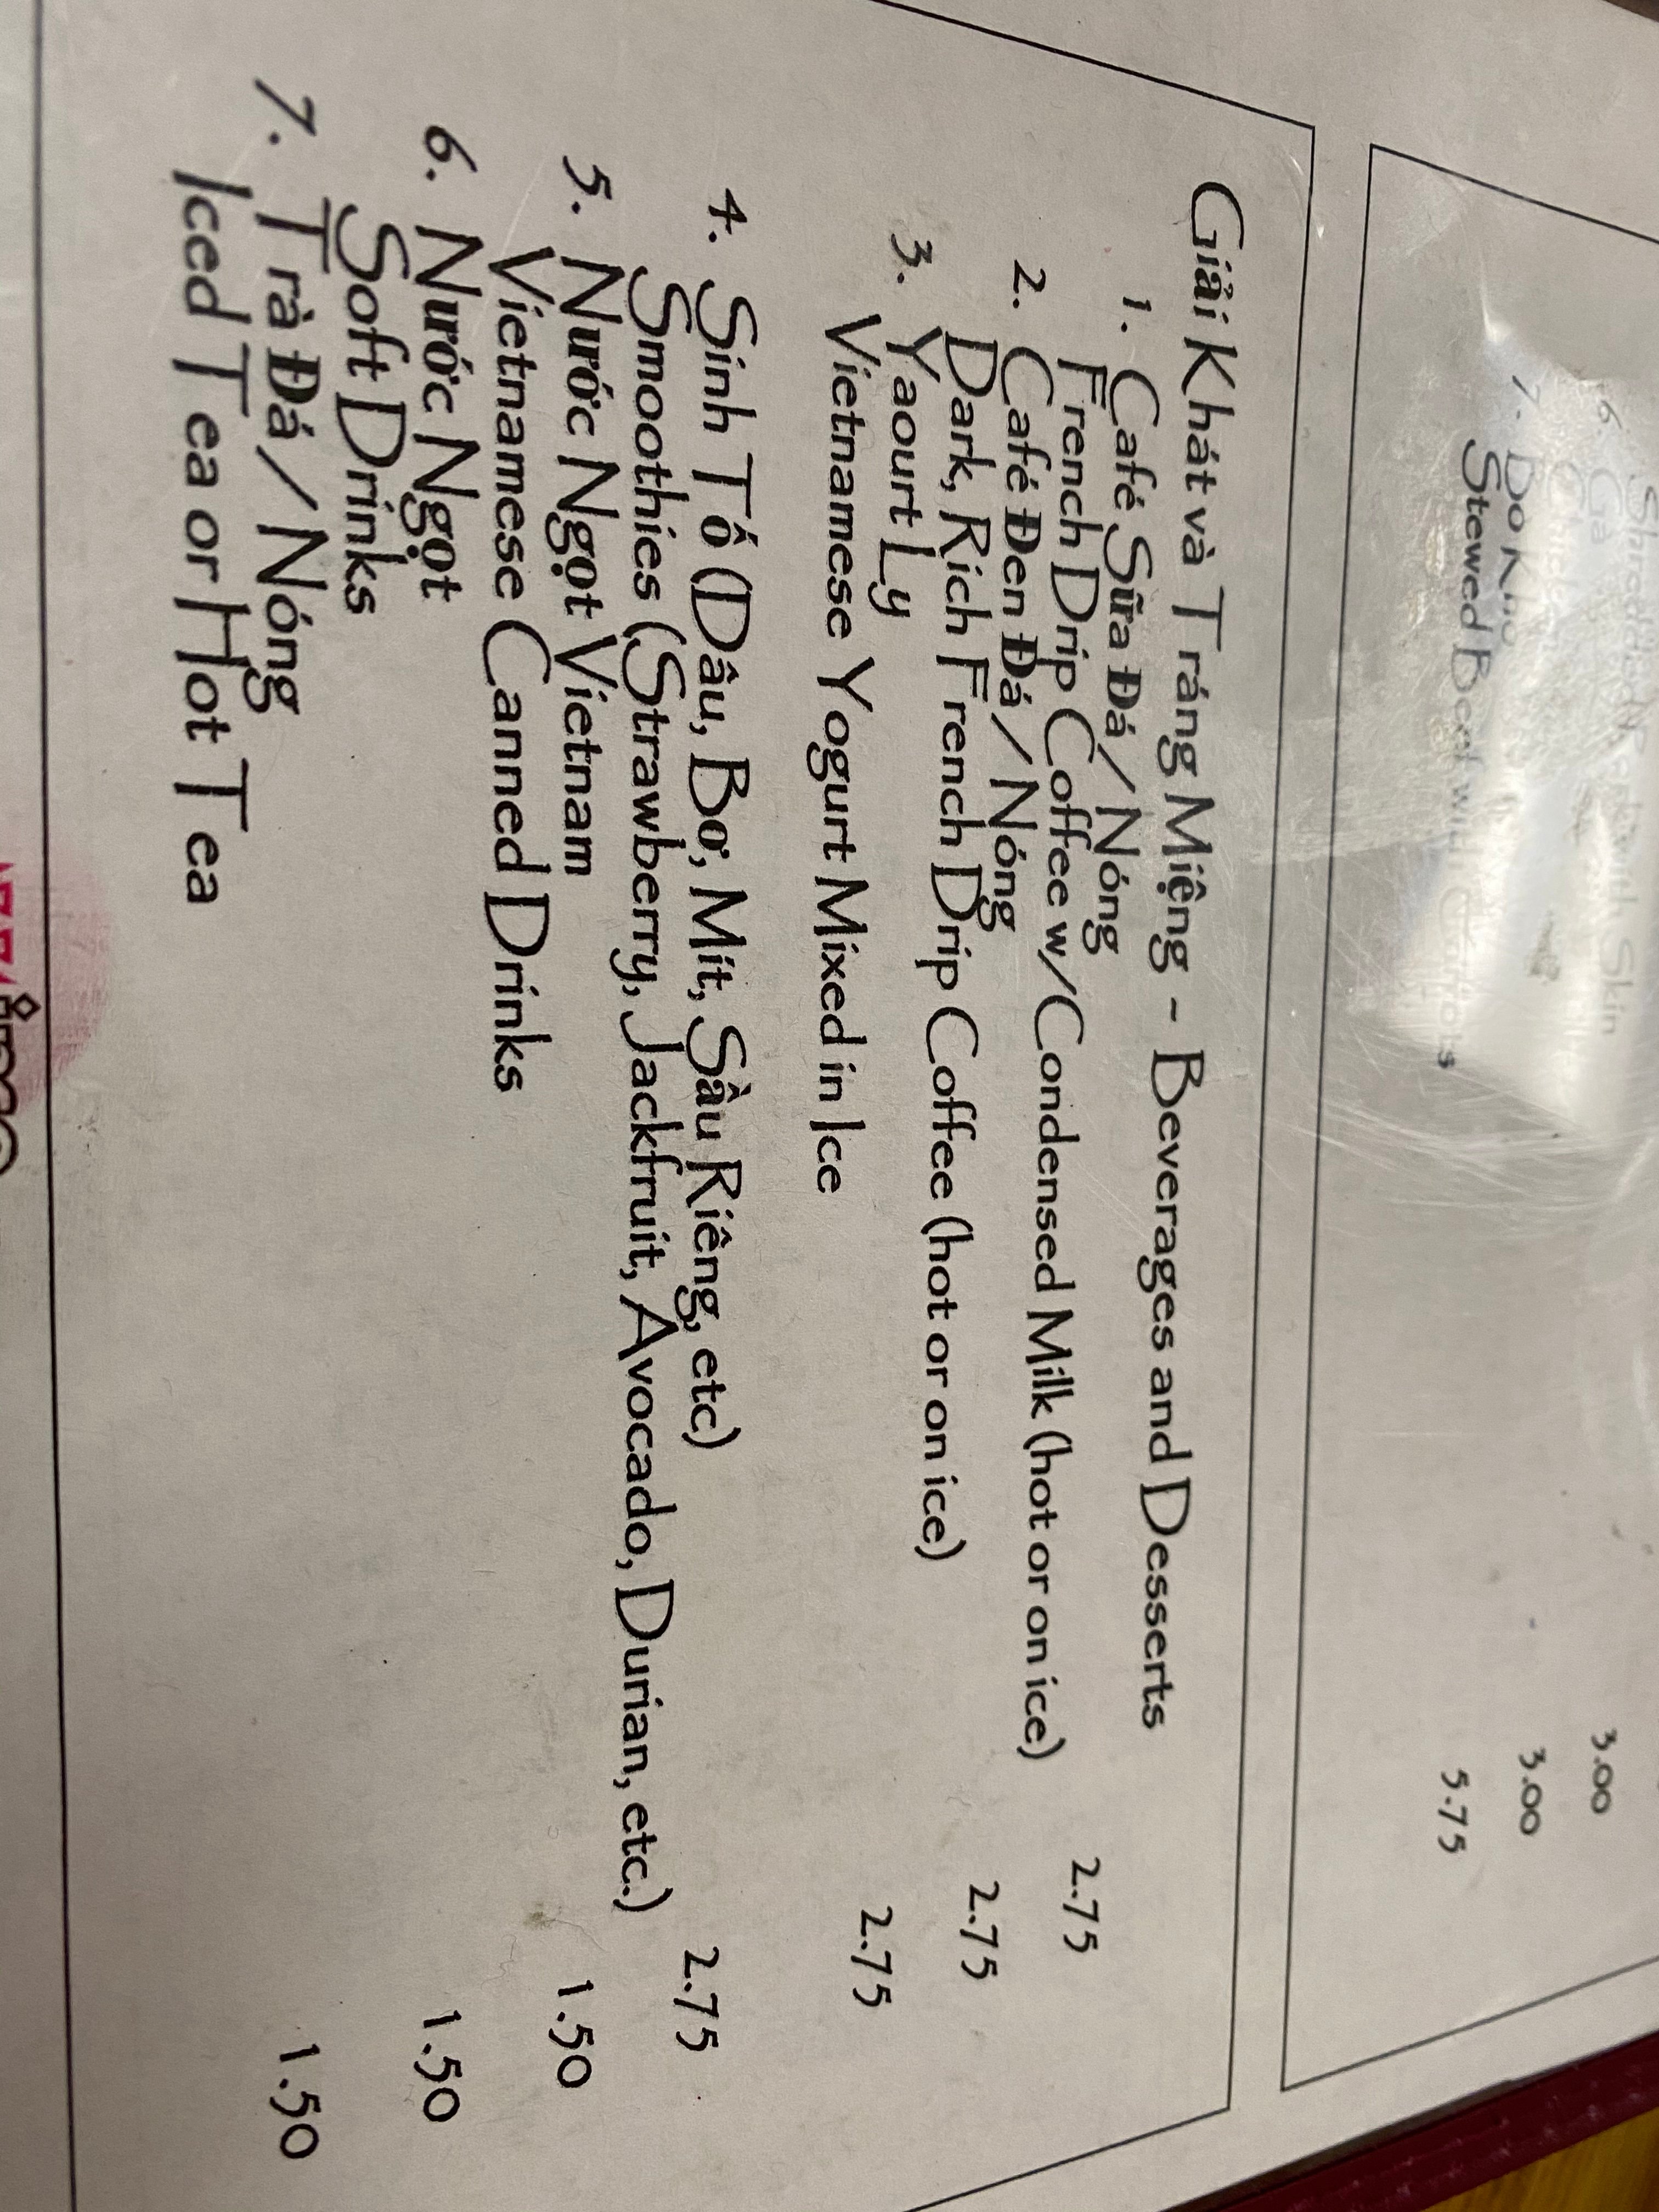 Skin
7.
Stewed Beef
3.00
3.00
5.75
Giải Khát và Tráng Miệng - Beverages and Desserts
1. Café Sữa Đá / Nóng
French Drip Coffee w/ Condensed Milk (hot or on ice) 2.75
2. Café Đen Đá / Nóng
Dark, Rich French Drip Coffee (hot or on ice) 2.75
3. Yaourt Ly
Vietnamese Yogurt Mixed in Ice 2.75
4. Sinh Tố (Dâu, Bơ, Mít, Sầu Riêng, etc)
Smoothies (Strawberry, Jackfruit, Avocado, Durian, etc.) 2.75
5. Nước Ngọt Vietnam 1.50
Vietnamese Canned Drinks
6. Nước Ngọt 1.50
Soft Drinks
7. Trà Đá / Nóng 1.50
Iced Tea or Hot Tea